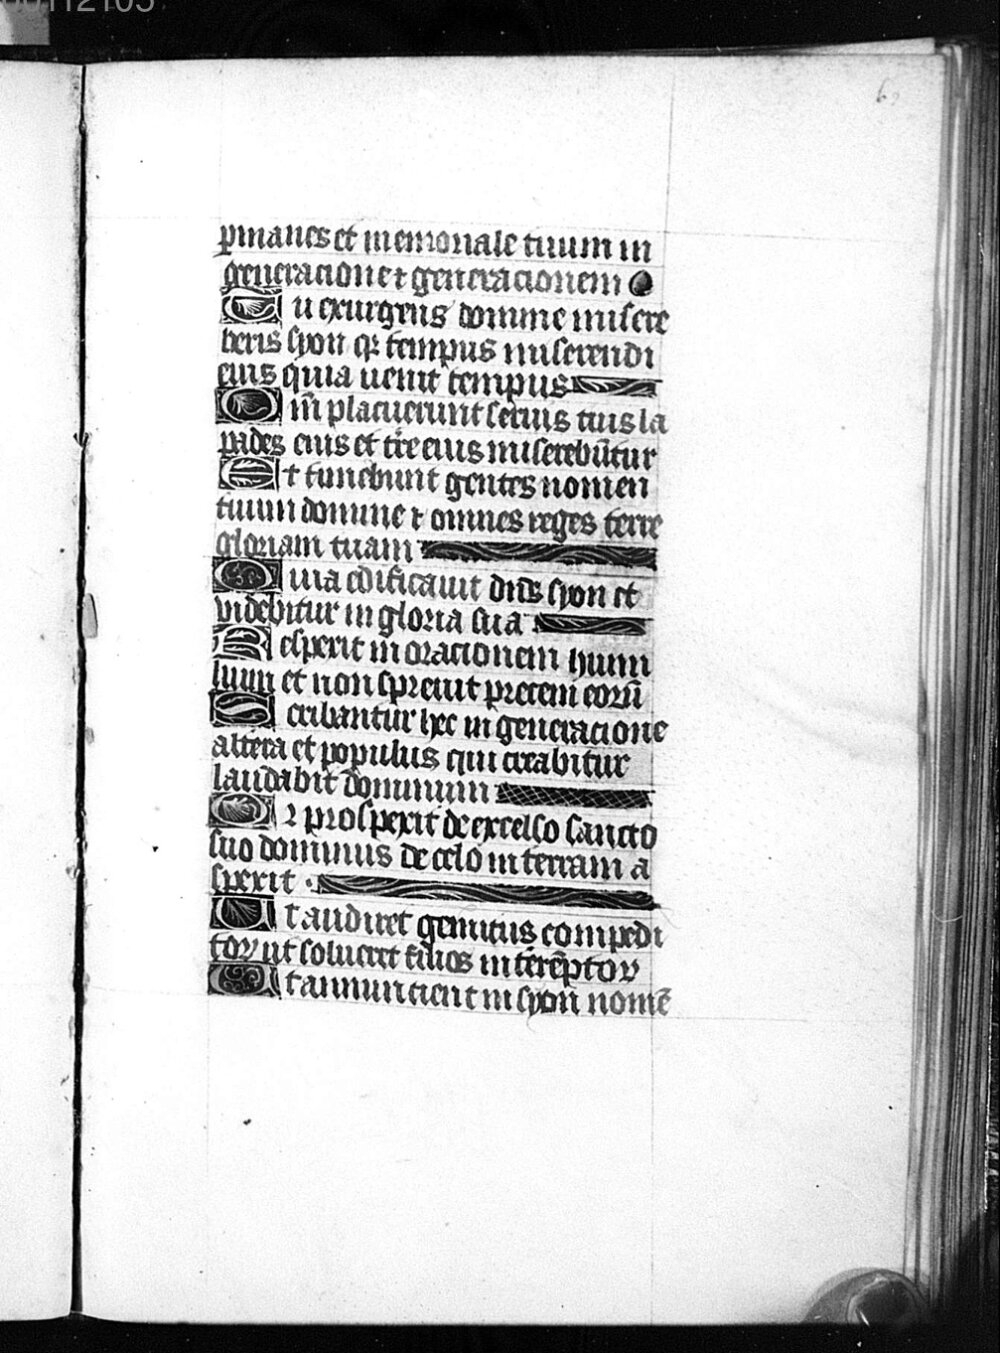 ꝑmanes et memoriale tuum in
generacione ⁊ generacionem
Tu exurgens domine misere
beris syon qꝛ tempus miserendi
eius quia uenit tempus
Qm̄ placuerunt seruis tuis la
pides eius et tr̄e eius miserebūtur
Et timebunt gentes nomen
tuum domine ⁊ omnes reges terre
gloriam tuam
Quia edificauit dn̄s syon et
videbitur in gloria sua
Respexit in oracionem humi
lium et non spreuit precem eorū
Scribantur hec in generacione
altera et populus qui creabitur
laudabit dominum
Qꝛ prospexit de excelso sancto
suo dominus de celo in terram a
spexit
Ut audiret gemitus compedi
toꝝ ut solueret filios interēptoꝝ
Ut annuncient in syon nomē